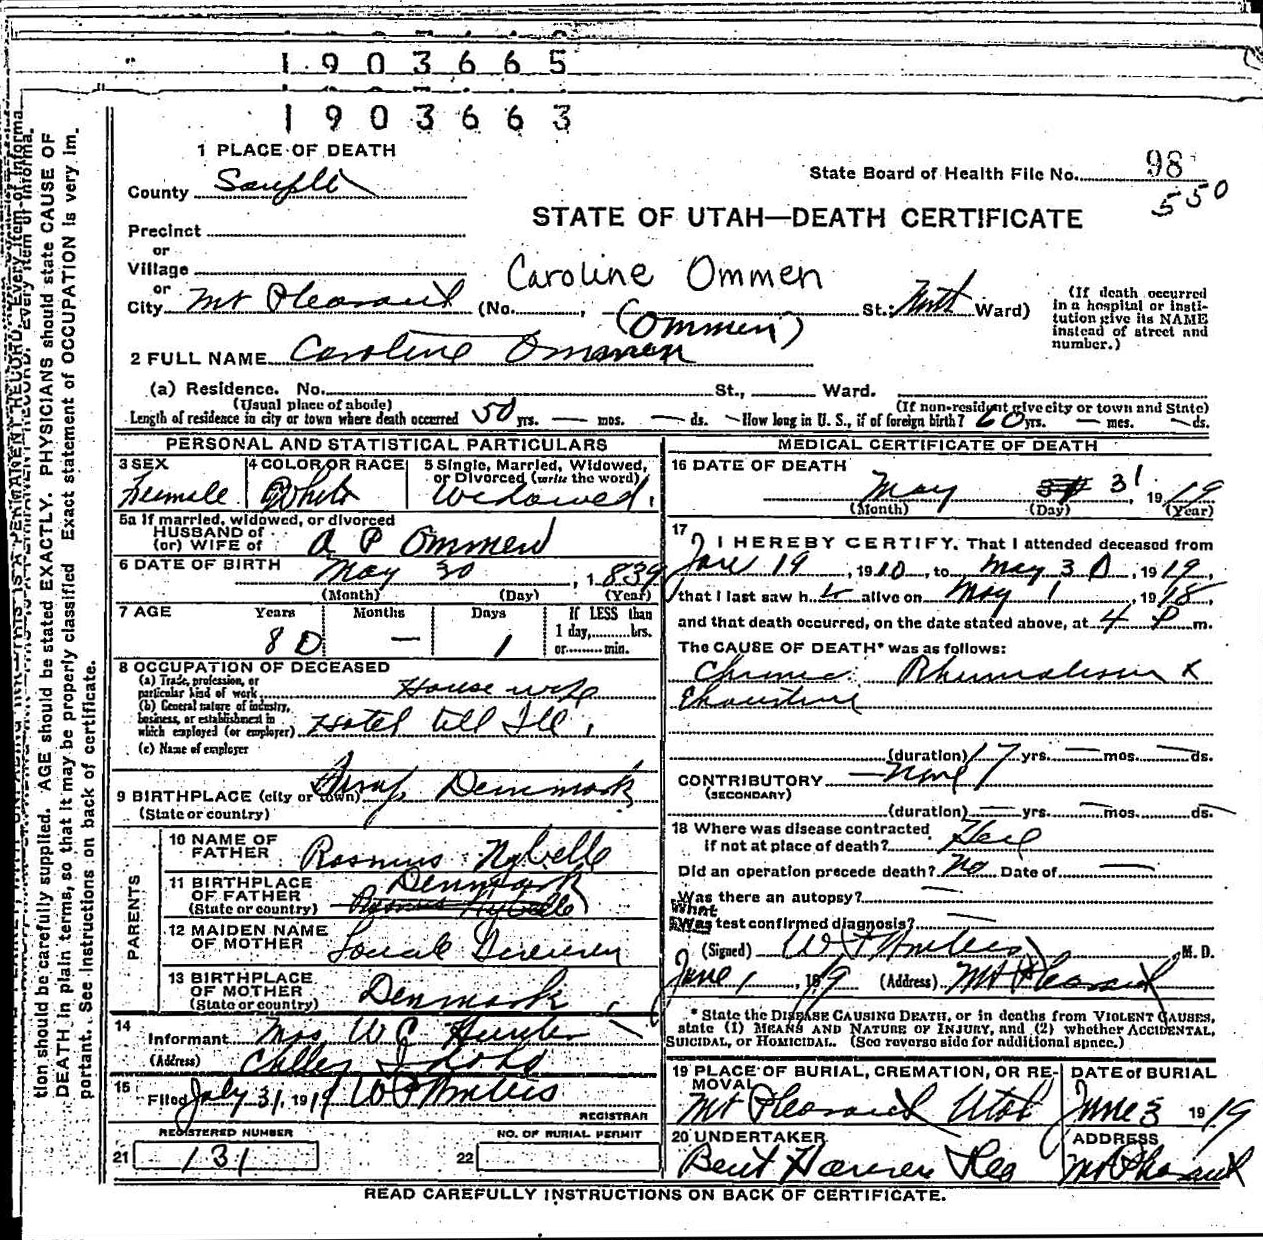 1903665
1903663
1 PLACE OF DEATH
State Board of Health File No. 98
550
County
STATE OF UTAH—DEATH CERTIFICATE
Precinct
or
Village
Caroline Ommen
or
City Mt Pleasant (No. , St.; North Ward)
(If death occurred in a hospital or institution give its NAME instead of street and number.)
(Ommen)
2 FULL NAME Caroline Ommen
(a) Residence. No. St., Ward.
(Usual place of abode) (If non-resident give city or town and State)
Length of residence in city or town where death occurred 50 yrs. — mos. — ds. How long in U. S., if of foreign birth? 60 yrs. — mos. — ds.
PERSONAL AND STATISTICAL PARTICULARS
3 SEX 4 COLOR OR RACE 5 Single, Married, Widowed, or Divorced (write the word)
Female White Widowed.
5a If married, widowed, or divorced
HUSBAND of
(or) WIFE of A P Ommen
6 DATE OF BIRTH May 30, 1839
(Month) (Day) (Year)
7 AGE Years Months Days If LESS than
1 day, hrs.
or min.
80 — 1
8 OCCUPATION OF DECEASED
(a) Trade, profession, or particular kind of work House wife
(b) General nature of industry, business, or establishment in which employed (or employer) Hotel till Ill.
(c) Name of employer
9 BIRTHPLACE (city or town) Denmark
(State or country)
PARENTS
10 NAME OF FATHER Rasmus Nybelle
11 BIRTHPLACE OF FATHER Denmark
(State or country) Rasmus Nybelle
12 MAIDEN NAME OF MOTHER
13 BIRTHPLACE OF MOTHER Denmark
(State or country)
14
Informant Mrs W C
(Address) Idaho
15
Filed July 31, 1919
REGISTRAR
REGISTERED NUMBER NO. OF BURIAL PERMIT
21 131 22
MEDICAL CERTIFICATE OF DEATH
16 DATE OF DEATH
May 31, 1919
(Month) (Day) (Year)
17
I HEREBY CERTIFY, That I attended deceased from
19, 1910, to May 30, 1919,
that I last saw h alive on May 1 1918,
and that death occurred, on the date stated above, at 4 P m.
The CAUSE OF DEATH* was as follows:
Chronic Rheumatism &
(duration) 17 yrs. — mos. — ds.
CONTRIBUTORY — None
(SECONDARY)
(duration) — yrs. — mos. — ds.
18 Where was disease contracted
if not at place of death?
Did an operation precede death? No Date of —
Was there an autopsy? —
What test confirmed diagnosis? —
(Signed) M. D.
June 1, 1919 (Address) Mt Pleasant
* State the DISEASE CAUSING DEATH, or in deaths from VIOLENT CAUSES,
state (1) MEANS AND NATURE OF INJURY, and (2) whether ACCIDENTAL,
SUICIDAL, or HOMICIDAL. (See reverse side for additional space.)
19 PLACE OF BURIAL, CREMATION, OR REMOVAL DATE of BURIAL
Mt Pleasant Utah June 3 1919
20 UNDERTAKER ADDRESS
Bent Hansen Mt Pleasant
READ CAREFULLY INSTRUCTIONS ON BACK OF CERTIFICATE.
tion should be carefully supplied. AGE should be stated EXACTLY. PHYSICIANS should state CAUSE OF
DEATH in plain terms, so that it may be properly classified. Exact statement of OCCUPATION is very im-
portant. See instructions on back of certificate.